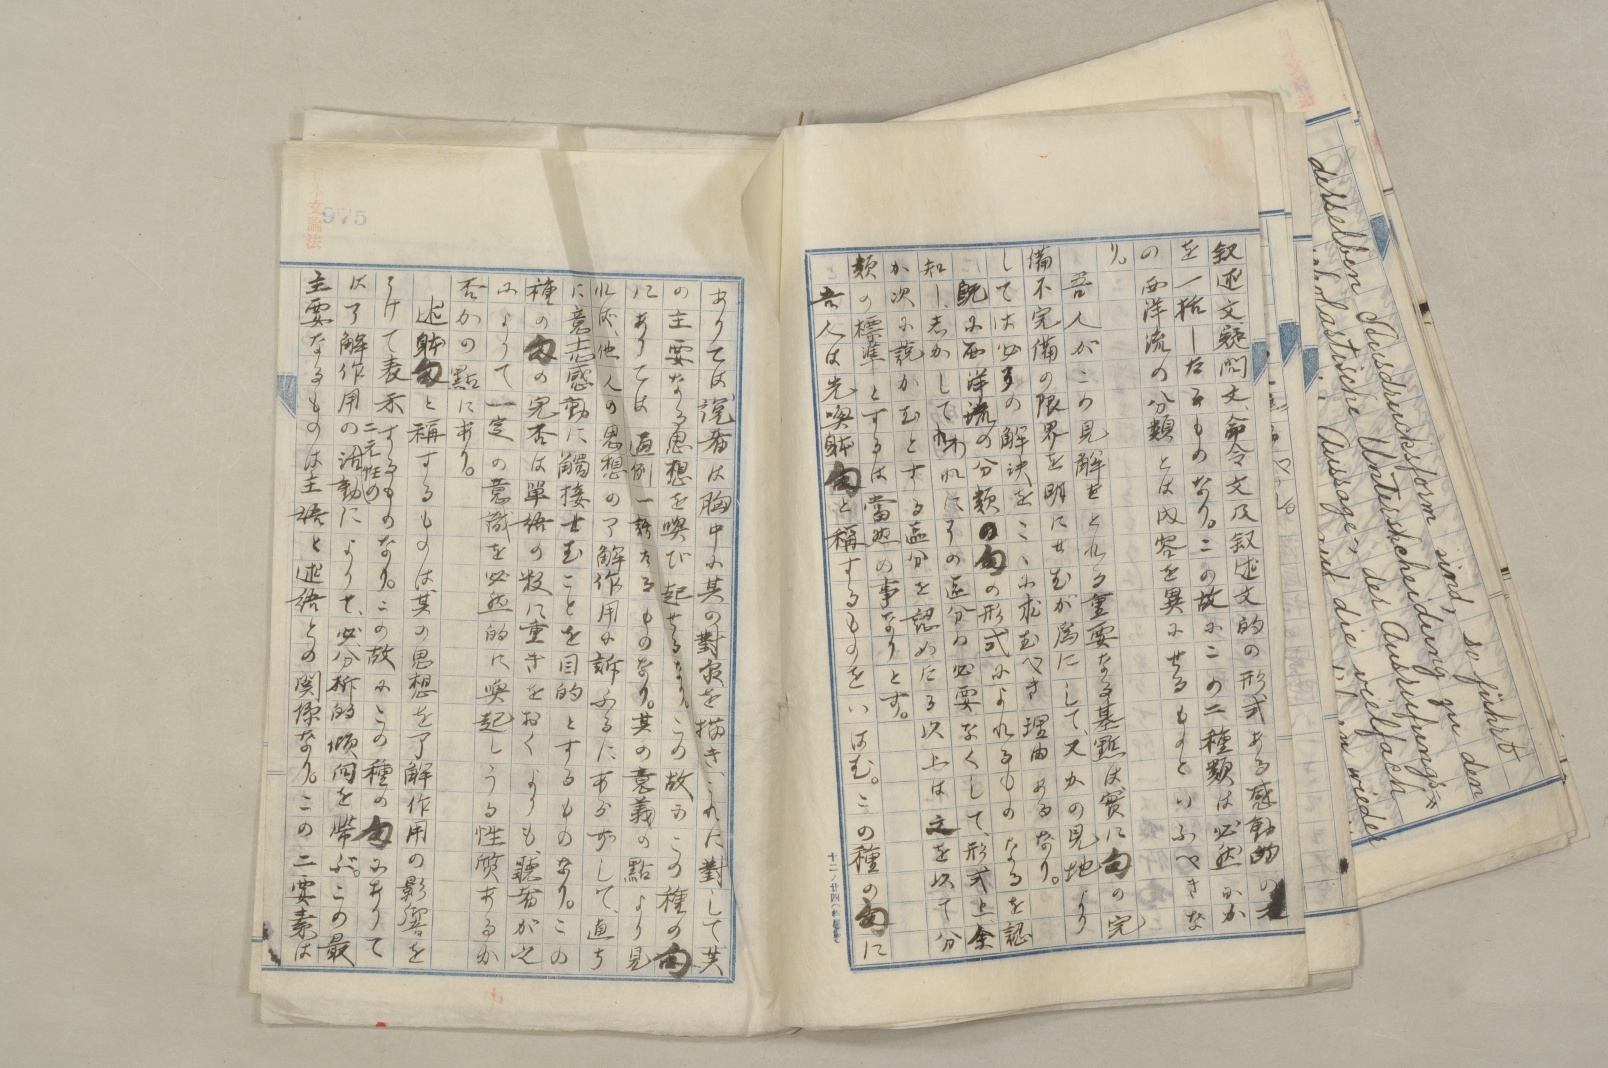 叙述文、疑問文、命令文及叙述文的の形式ある感動的の文
を一括したるものなり。この故にこの二種類は必然かか
の西洋流の分類とは内容を異にせるものといふべきな
り。
吾人がこの見解せられる重要なる基礎は實に句の完
備不完備の限界を明にせむが爲にして、又かの見地より
しては必ずの解決をここに求むべき理由あるなり。
既に西洋流の分類の句の形式によれるものなるを認
知し、しかしてわれにその區分の必要なくして、形式上、余
か次に説かむとする區分を認めたる以上は之を以て分
類の標準とするは當然の事なりとす。
吾人は先喚躰句と稱するものをいはむ。この種の句に
十二ノ廿四
ありては説者は胸中に其の對象を描き、これに對して其
の主要なる思想を喚び起せるなり。この故にこの種の句
にありては通例一語たるものなり。其の意義の點より見
れば、他人の思想の了解作用に訴ふるにあらずして、直ち
に意志感動に觸接せむことを目的とするものなり。この
種の句の完否は單語の數に重きをおくよりも、聽者が之
によりて一定の意識を必然的に喚起しうる性質あるか
否かの點にあり。
述躰句と稱するものは其の思想を了解作用の影響を
うけて表示するものなり。この故にこの種の句にありて
は了解作用の二元性の活動によりて、必分析的傾向を帶ぶ。この最
主要なるものは主語と述語との関係なり。この二要素は
975
文論法
derselben Ausdrucksform sind, so führt
scholastische Unterscheidung zu den
Aussage, der Ausrufungs=
und die vielfach
wieder